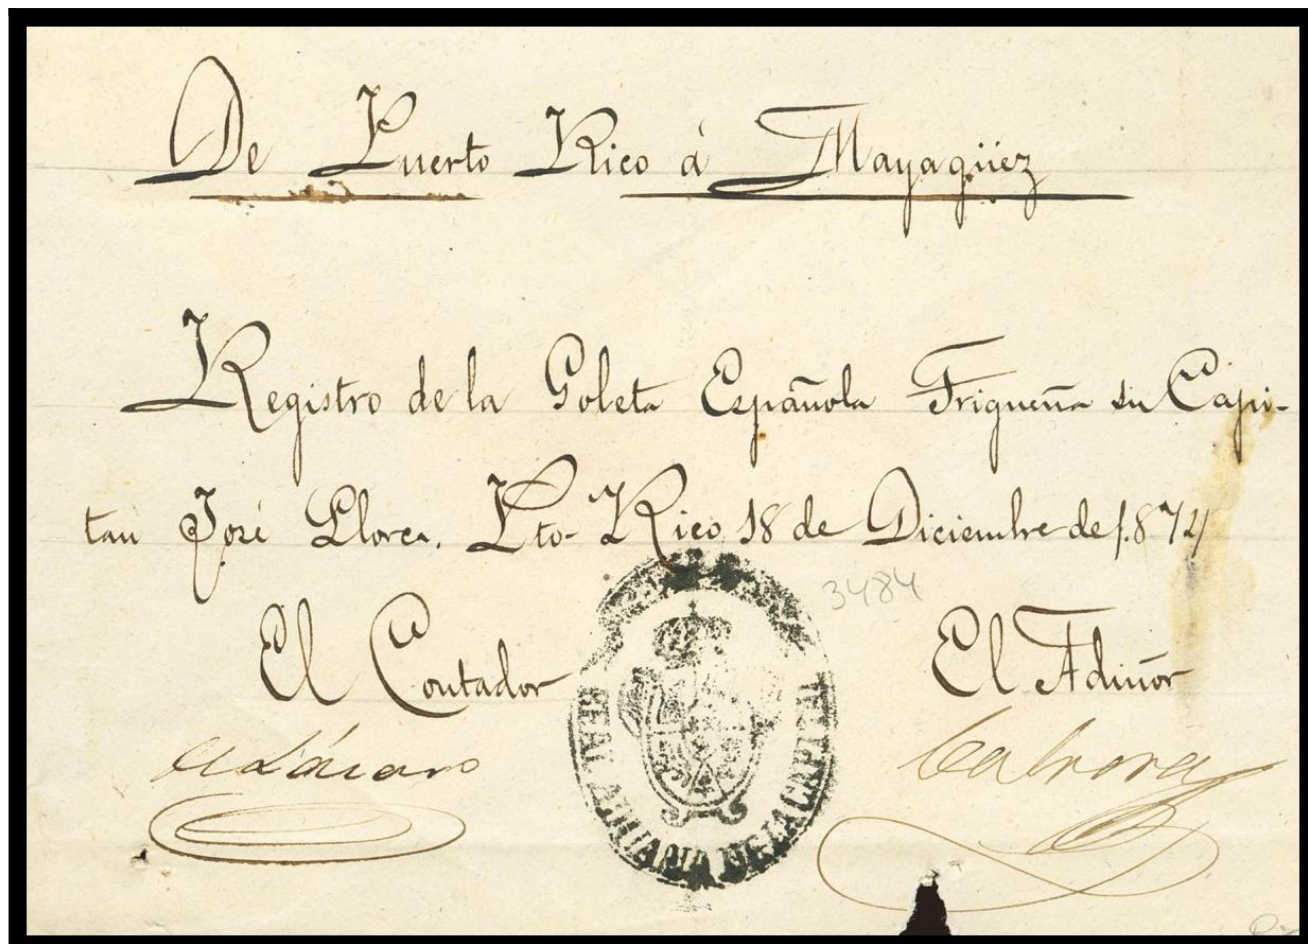 De Puerto Rico á Mayagüez
Registro de la Goleta Española Trigueña su Capi-
tan José Llorca. Pto-Rico 18 de Diciembre de 1.874
3484
El Contador
El Admor
REAL ADUANA DE LA CAPITAL
Cabrera